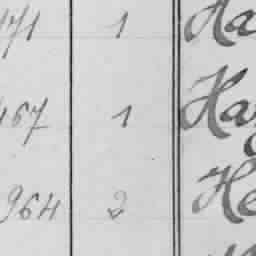 171 1 Ha
467 1 Hay
964 2 He